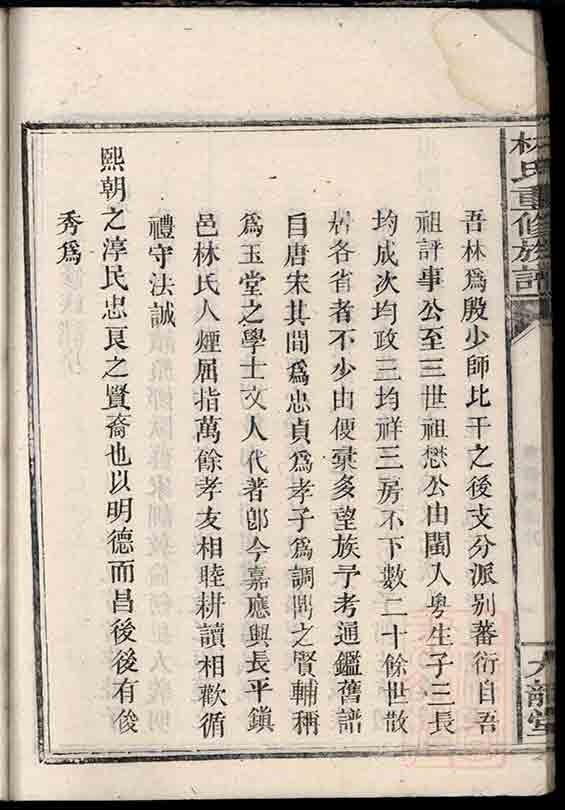 林氏重修族譜
吾林爲殷少師比干之後支分派别蕃衍自吾
祖評事公至三世祖懋公由閩入粤生子三長
均成次均政三均祥三房不下數二十餘世散
居各省者不少由便彙多望族予考通鑑舊譜
自唐宋其間爲忠貞爲孝子爲調鼎之賢輔稱
爲玉堂之學士文人代著郎今嘉應興長平鎮
邑林氏人煙屈指萬餘孝友相睦耕讀相歡循
禮守法誠
熙朝之淳民忠良之賢裔也以明德而昌後後有俊
秀爲
九龍堂